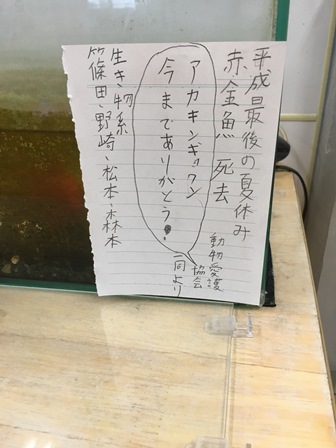 平成最後の夏休み
赤金魚 死去
アカキンギョクン
今までありがとう!
動物愛護
協会
一同より
生き物系
篠田・野崎・松本・森本